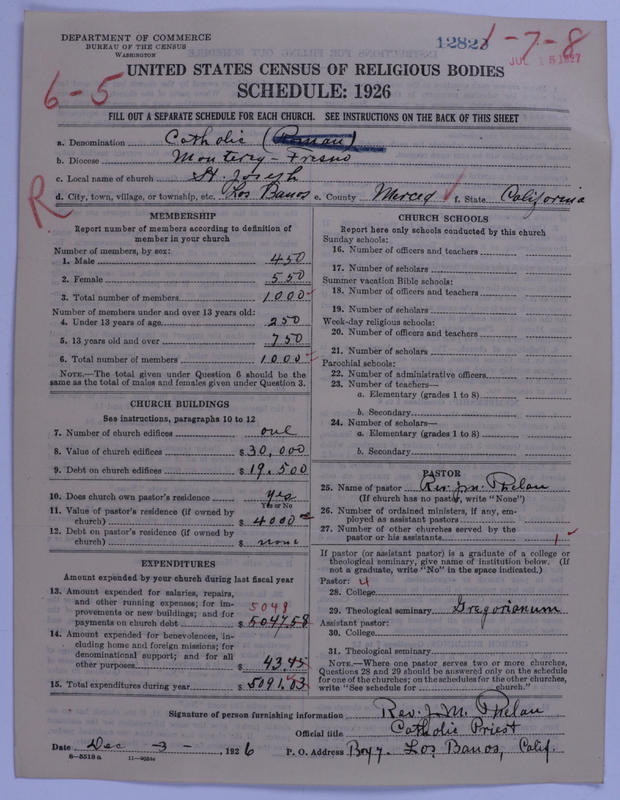 DEPARTMENT OF COMMERCE
BUREAU OF THE CENSUS
WASHINGTON
12823
1-7-8
JUL 15 1927
6-5
UNITED STATES CENSUS OF RELIGIOUS BODIES
SCHEDULE: 1926
FILL OUT A SEPARATE SCHEDULE FOR EACH CHURCH. SEE INSTRUCTIONS ON THE BACK OF THIS SHEET
a. Denomination Catholic (Roman)
b. Diocese Monterey-Fresno
c. Local name of church St. Joseph
R
d. City, town, village, or township, etc. Los Banos e. County Merced f. State California
MEMBERSHIP
Report number of members according to definition of
member in your church
Number of members, by sex:
1. Male 450
2. Female 550
3. Total number of members 1000
Number of members under and over 13 years old:
4. Under 13 years of age 250
5. 13 years old and over 750
6. Total number of members 1000
NOTE.—The total given under Question 6 should be
same as the total of males and females given under Question 3.
CHURCH BUILDINGS
See instructions, paragraphs 10 to 12
7. Number of church edifices one
8. Value of church edifices $ 30,000
9. Debt on church edifices $ 19.500
10. Does church own pastor's residence yes
Yes or No
11. Value of pastor's residence (if owned by
church) $ 4000 00
12. Debt on pastor's residence (if owned by
church) $ none
EXPENDITURES
Amount expended by your church during last fiscal year
13. Amount expended for salaries, repairs,
and other running expenses; for im-
provements or new buildings; and for
payments on church debt $ 5047.58
5048
14. Amount expended for benevolences, in-
cluding home and foreign missions; for
denominational support; and for all
other purposes $ 43.45
15. Total expenditures during year $ 5091.03
CHURCH SCHOOLS
Report here only schools conducted by this church
Sunday schools:
16. Number of officers and teachers
17. Number of scholars
Summer vacation Bible schools:
18. Number of officers and teachers
19. Number of scholars
Week-day religious schools:
20. Number of officers and teachers
21. Number of scholars
Parochial schools:
22. Number of administrative officers
23. Number of teachers—
a. Elementary (grades 1 to 8)
b. Secondary
24. Number of scholars—
a. Elementary (grades 1 to 8)
b. Secondary
PASTOR
25. Name of pastor Rev. J.M. Phelan
(If church has no pastor, write "None")
26. Number of ordained ministers, if any, em-
ployed as assistant pastors
27. Number of other churches served by the
pastor or his assistants 1
If pastor (or assistant pastor) is a graduate of a college or
theological seminary, give name of institution below. (If
not a graduate, write "No" in the space indicated.)
Pastor: 4
28. College
29. Theological seminary Gregorianum
Assistant pastor:
30. College
31. Theological seminary
NOTE.—Where one pastor serves two or more churches,
Questions 28 and 29 should be answered only on the schedule
for one of the churches; on the schedules for the other churches,
write "See schedule for church."
Signature of person furnishing information Rev. J.M. Phelan
Official title Catholic Priest
Date Dec -3-, 1926 P. O. Address Box 7. Los Banos, Calif.
8—5518a